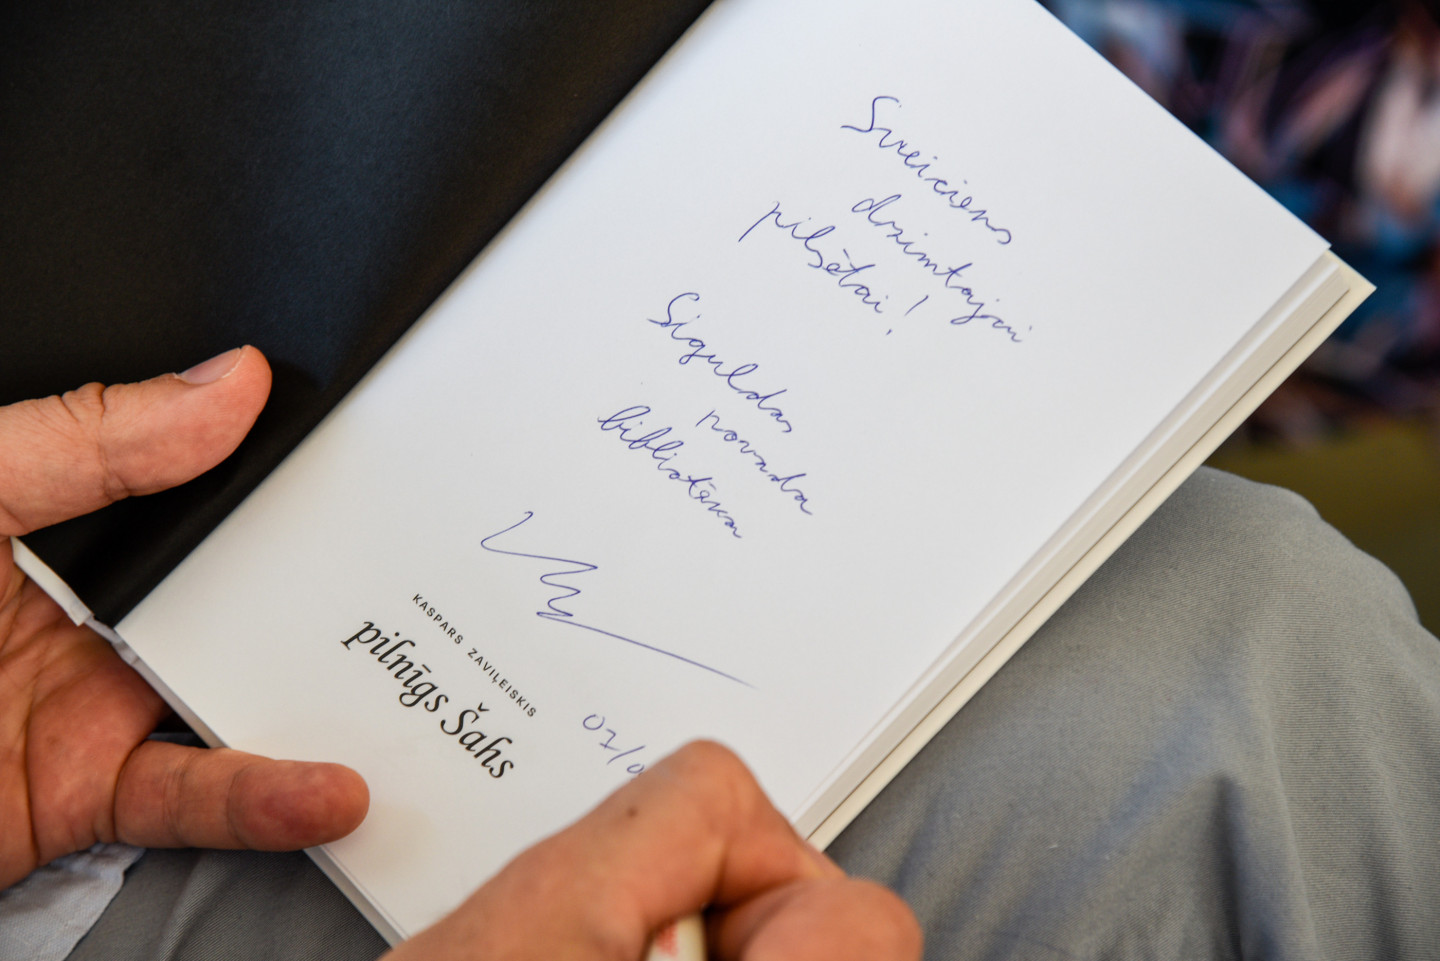 Sveiciens
dzimtajai
pilsētai!
Siguldas
novada
bibliotēka
KASPARS ZAVIĻEISKIS
pilnīgs Šahs
07/0